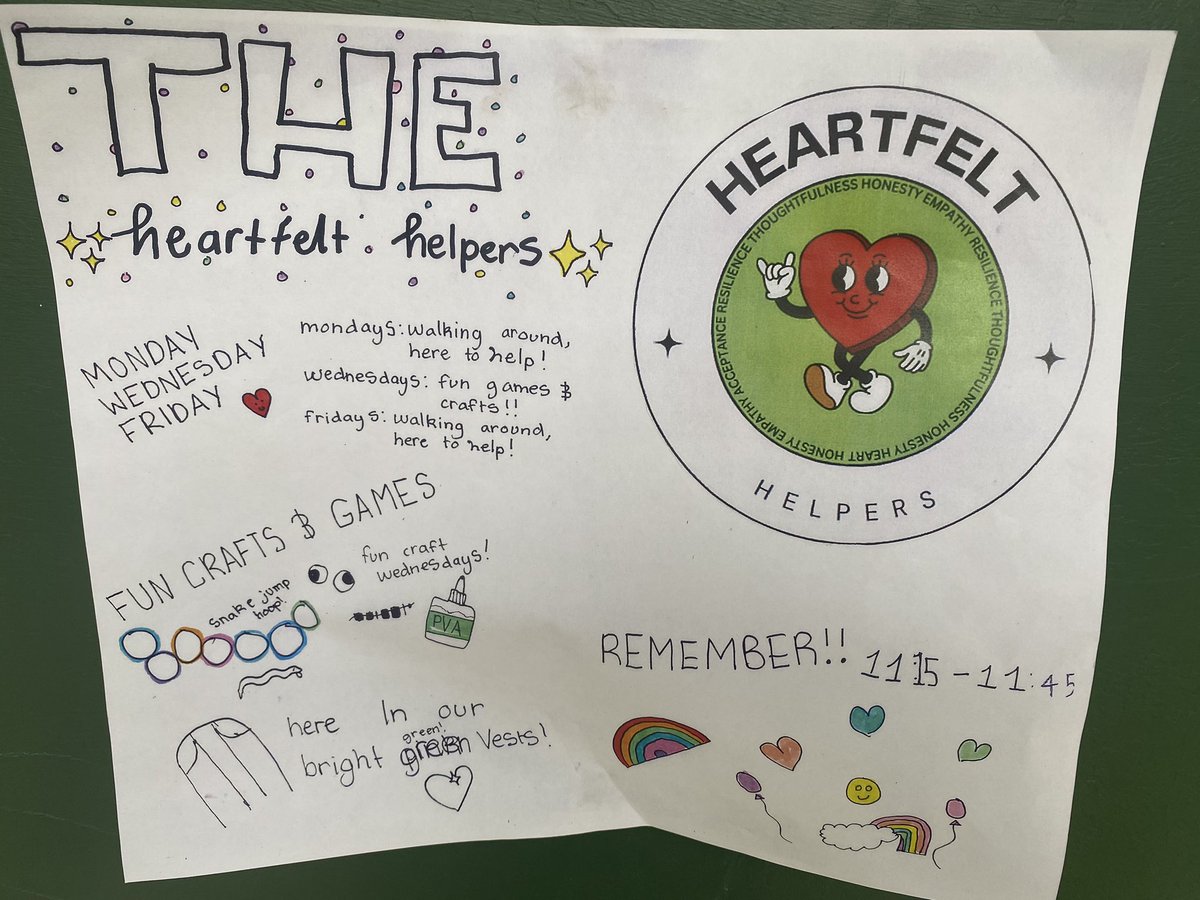 THE
heartfelt helpers
MONDAY
WEDNESDAY
FRIDAY
mondays: walking around,
here to help!
wednesdays: fun games &
crafts!!
fridays: walking around,
here to help!
FUN CRAFTS & GAMES
snake jump
hoop!
fun craft
wednesdays!
PVA
here In our
green!
bright green Vests!
HEARTFELT
ACCEPTANCE RESILIENCE THOUGHTFULNESS HONESTY EMPATHY RESILIENCE THOUGHTFULNESS HONESTY HEART HONESTY EMPATHY
HELPERS
REMEMBER!! 11:15 - 11:45